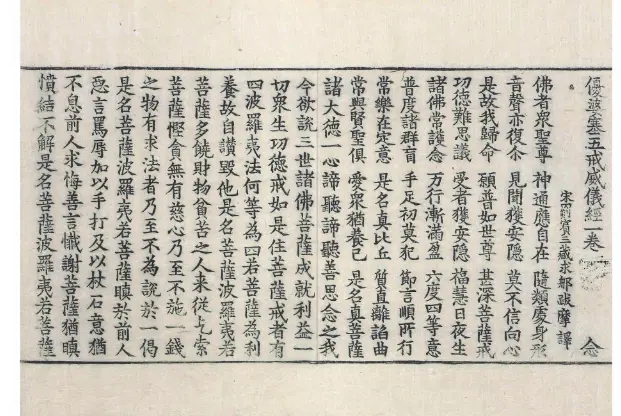 優婆塞五戒威儀經一卷 念
宋罽賓三藏求那跋摩 譯
佛者衆聖尊 神通應自在 隨類處身形
音聲亦復尒 見聞獲安隱 莫不信向心
是故我歸命 願善如世尊 甚深菩薩戒
功德難思議 受者獲安隱 福慧日夜生
諸佛常護念 万行漸滿盈 六度四等意
普度諸群盲 手足初莫犯 節言順所行
常樂在定意 是名真比丘 質直離諂曲
常與賢聖俱 愛衆猶養己 是名真菩薩
諸大德一心諦聽諦聽善思念之我
今欲說三世諸佛菩薩成就利益一
切衆生功德戒如是住菩薩戒者有
四波羅夷法何等為四若菩薩為利
養故自讃毀他是名菩薩波羅夷若
菩薩多饒財物貧苦之人来從乞索
菩薩慳貪無有慈心乃至不施一錢
之物有求法者乃至不為說於一偈
是名菩薩波羅夷若菩薩瞋於前人
惡言罵辱加以手打及以杖石意猶
不息前人求悔善言懺謝菩薩猶瞋
憤結不解是名菩薩波羅夷若菩薩